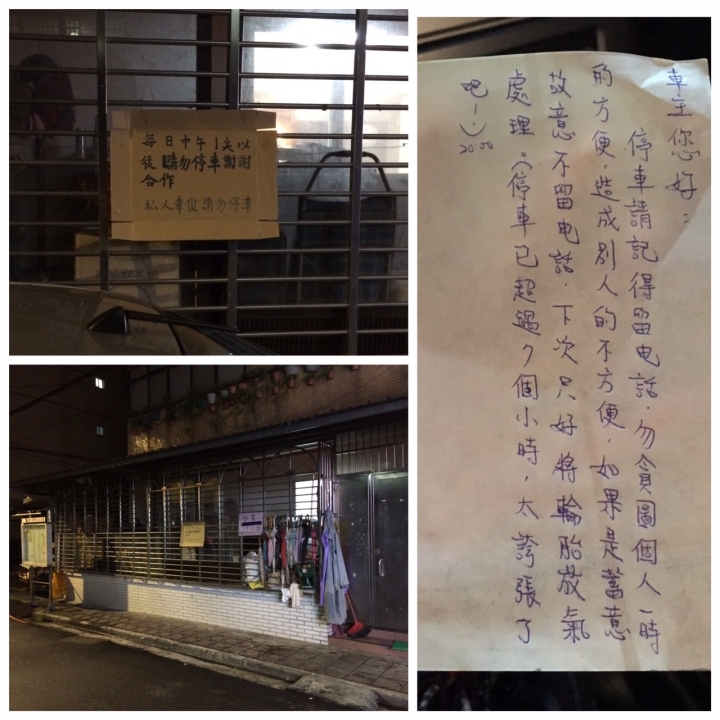 每日中午1奌以
後請勿停車謝謝
合作
私人車位請勿停車
車主您好：
停車請記得留电話，勿貪圖個人一時
的方便，造成別人的不方便，如果是蓄意
故意不留电話，下次只好將輪胎放氣
處理。(停車已超過7個小時，太誇張了
吧！)
20:00